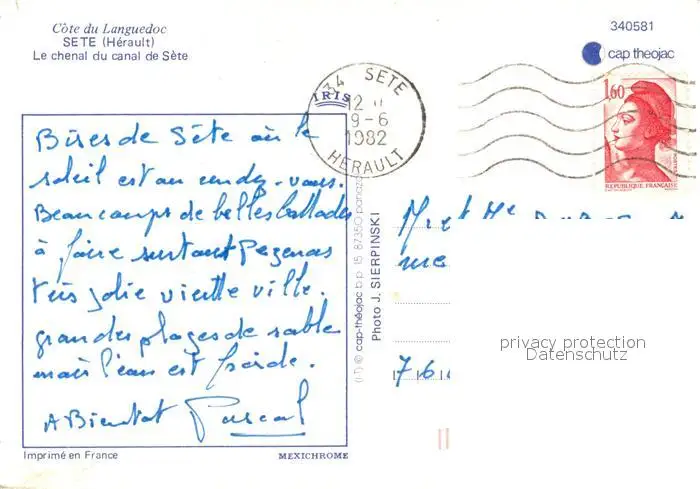 Côte du Languedoc
SETE (Hérault)
Le chenal du canal de Sète
340581
cap theojac
34 SETE
12 H
9-6
1982
HERAULT
IRIS
1,60
REPUBLIQUE FRANÇAISE
Bises de Sète où le
soleil est au rendez-vous.
Beaucoups de belles ballades
à faire surtout Pezenas
très jolie vieille ville.
grandes plages de sable
mais l'eau est froide.
A Bientot Pascal
(IT) © cap-théojac b.p. 15 87350 panazol
Photo J. SIERPINSKI
Mr et Me
privacy protection
Datenschutz
Imprimé en France
MEXICHROME